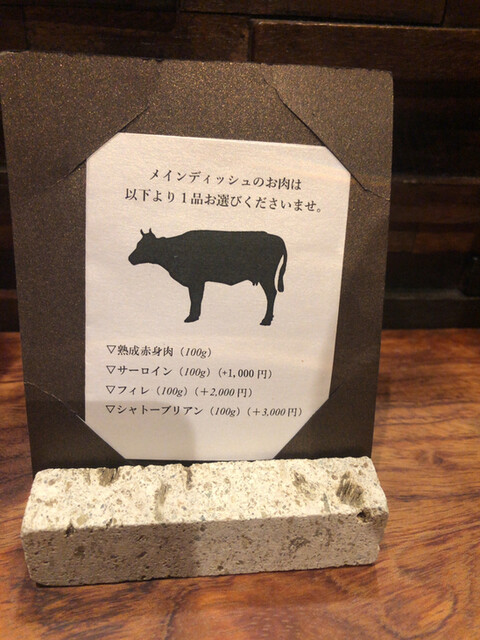 メインディッシュのお肉は
以下より１品お選びくださいませ。
▽熟成赤身肉（100g）
▽サーロイン（100g）（+1,000円）
▽フィレ（100g）（＋2,000円）
▽シャトーブリアン（100g）（＋3,000円）